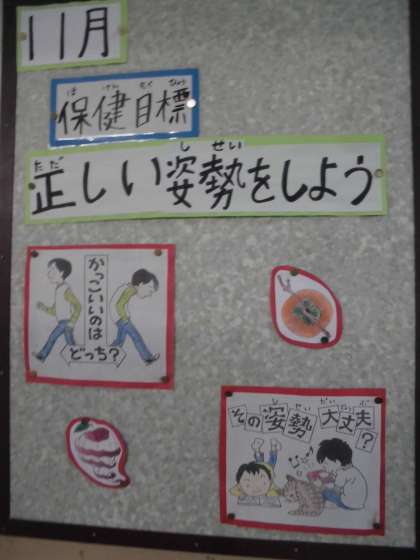 11月
ほけんもくひょう
保健目標
ただ しせい
正しい姿勢をしよう
かっこいいのは
どっち?
しせい だいじょうぶ
その姿勢大丈夫?